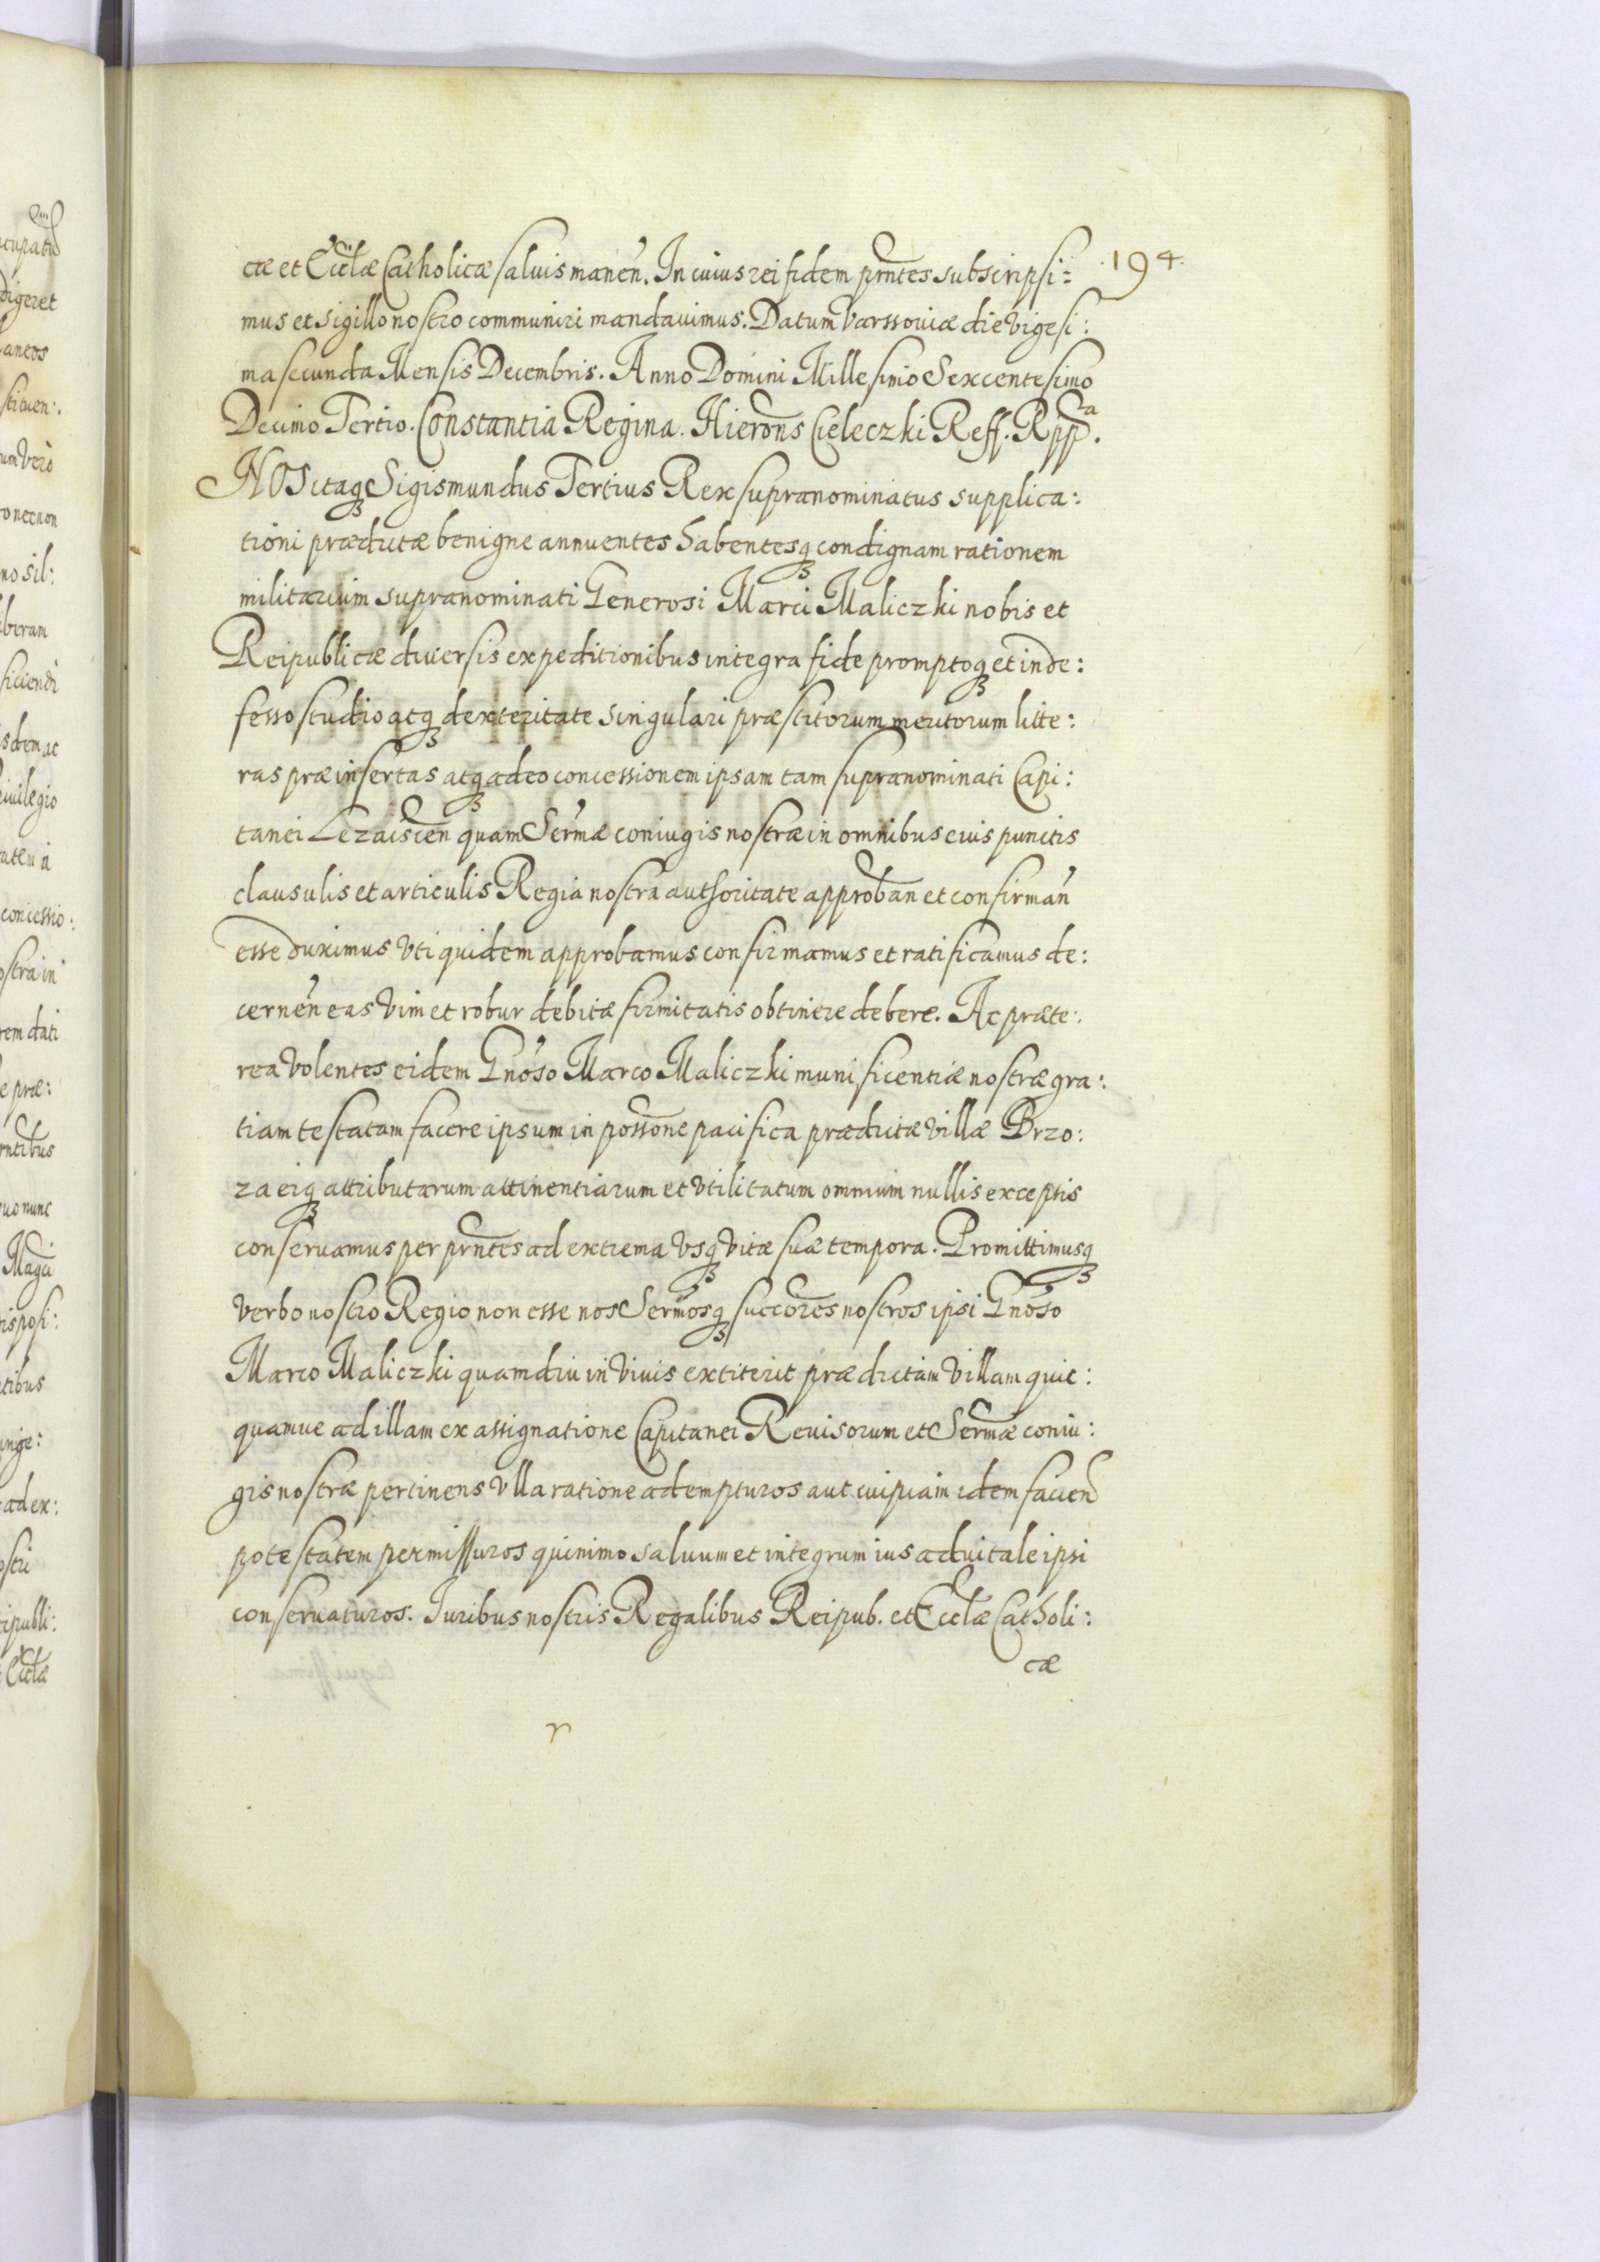 194.
cæ et Eccłæ Catholicæ saluis manen̄. In cuius rei fidem prn̄tes subscripsi=
mus et sigillo nostro communiri mandauimus. Datum Varssouiæ die Vigesi:
ma secunda Mensis Decembris. Anno Domini Millesimo Sexcentesimo
Decimo Tertio. Constantia Regina. Hieron̄s Cieleczki Reff. Rpp.
NOS itaq́ꝫ Sigismundus Tertius Rex supranominatus supplica:
tioni prædictæ benigne annuentes habentesqꝫ condignam rationem
militarium supranominati Generosi Marci Maliczki nobis et
Reipublicæ diuersis expeditionibus integra fide promptoqꝫ et inde:
fesso studio atqꝫ dexteritate singulari præstitorum meritorum litte:
ras præinsertas atqꝫ adeo concessionem ipsam tam supranominati Capi:
tanei Lezaiscen̄ quam Serm̄æ coniugis nostræ in omnibus eius punctis
clausulis et articulis Regia nostra authoritate approban̄ et confirman̄
esse duximus Vti quidem approbamus confirmamus et ratificamus de:
cernen̄ eas Vim et robur debitæ firmitatis obtinere debere. Ac præte:
rea Volentes eidem Gn̄oso Marco Maliczki munificentiæ nostræ gra:
tiam testatam facere ipsum in possōne pacifica prædictæ Villæ Brzo:
za eiqꝫ attributarum attinentiarum et Vtilitatum omnium nullis exceptis
conseruamus per prn̄tes ad extrema Vsqꝫ Vitæ suæ tempora. Promittimusqꝫ
Verbo nostro Regio non esse nos Serm̄osqꝫ succōres nostros ipsi Gn̄oso
Marco Maliczki quamdiu in Viuis extiterit prædictam Villam quic:
quamue ad illam ex assignatione Capitanei Reuisorum et Serm̄æ coniu:
gis nostræ pertinens Vlla ratione adempturos aut cuipiam idem facien̄
potestatem permissuros quinimo saluum et integrum ius aduitale ipsi
conseruaturos. Iuribus nostris Regalibus Reipub. et Eccłæ Catholi:
cæ
r